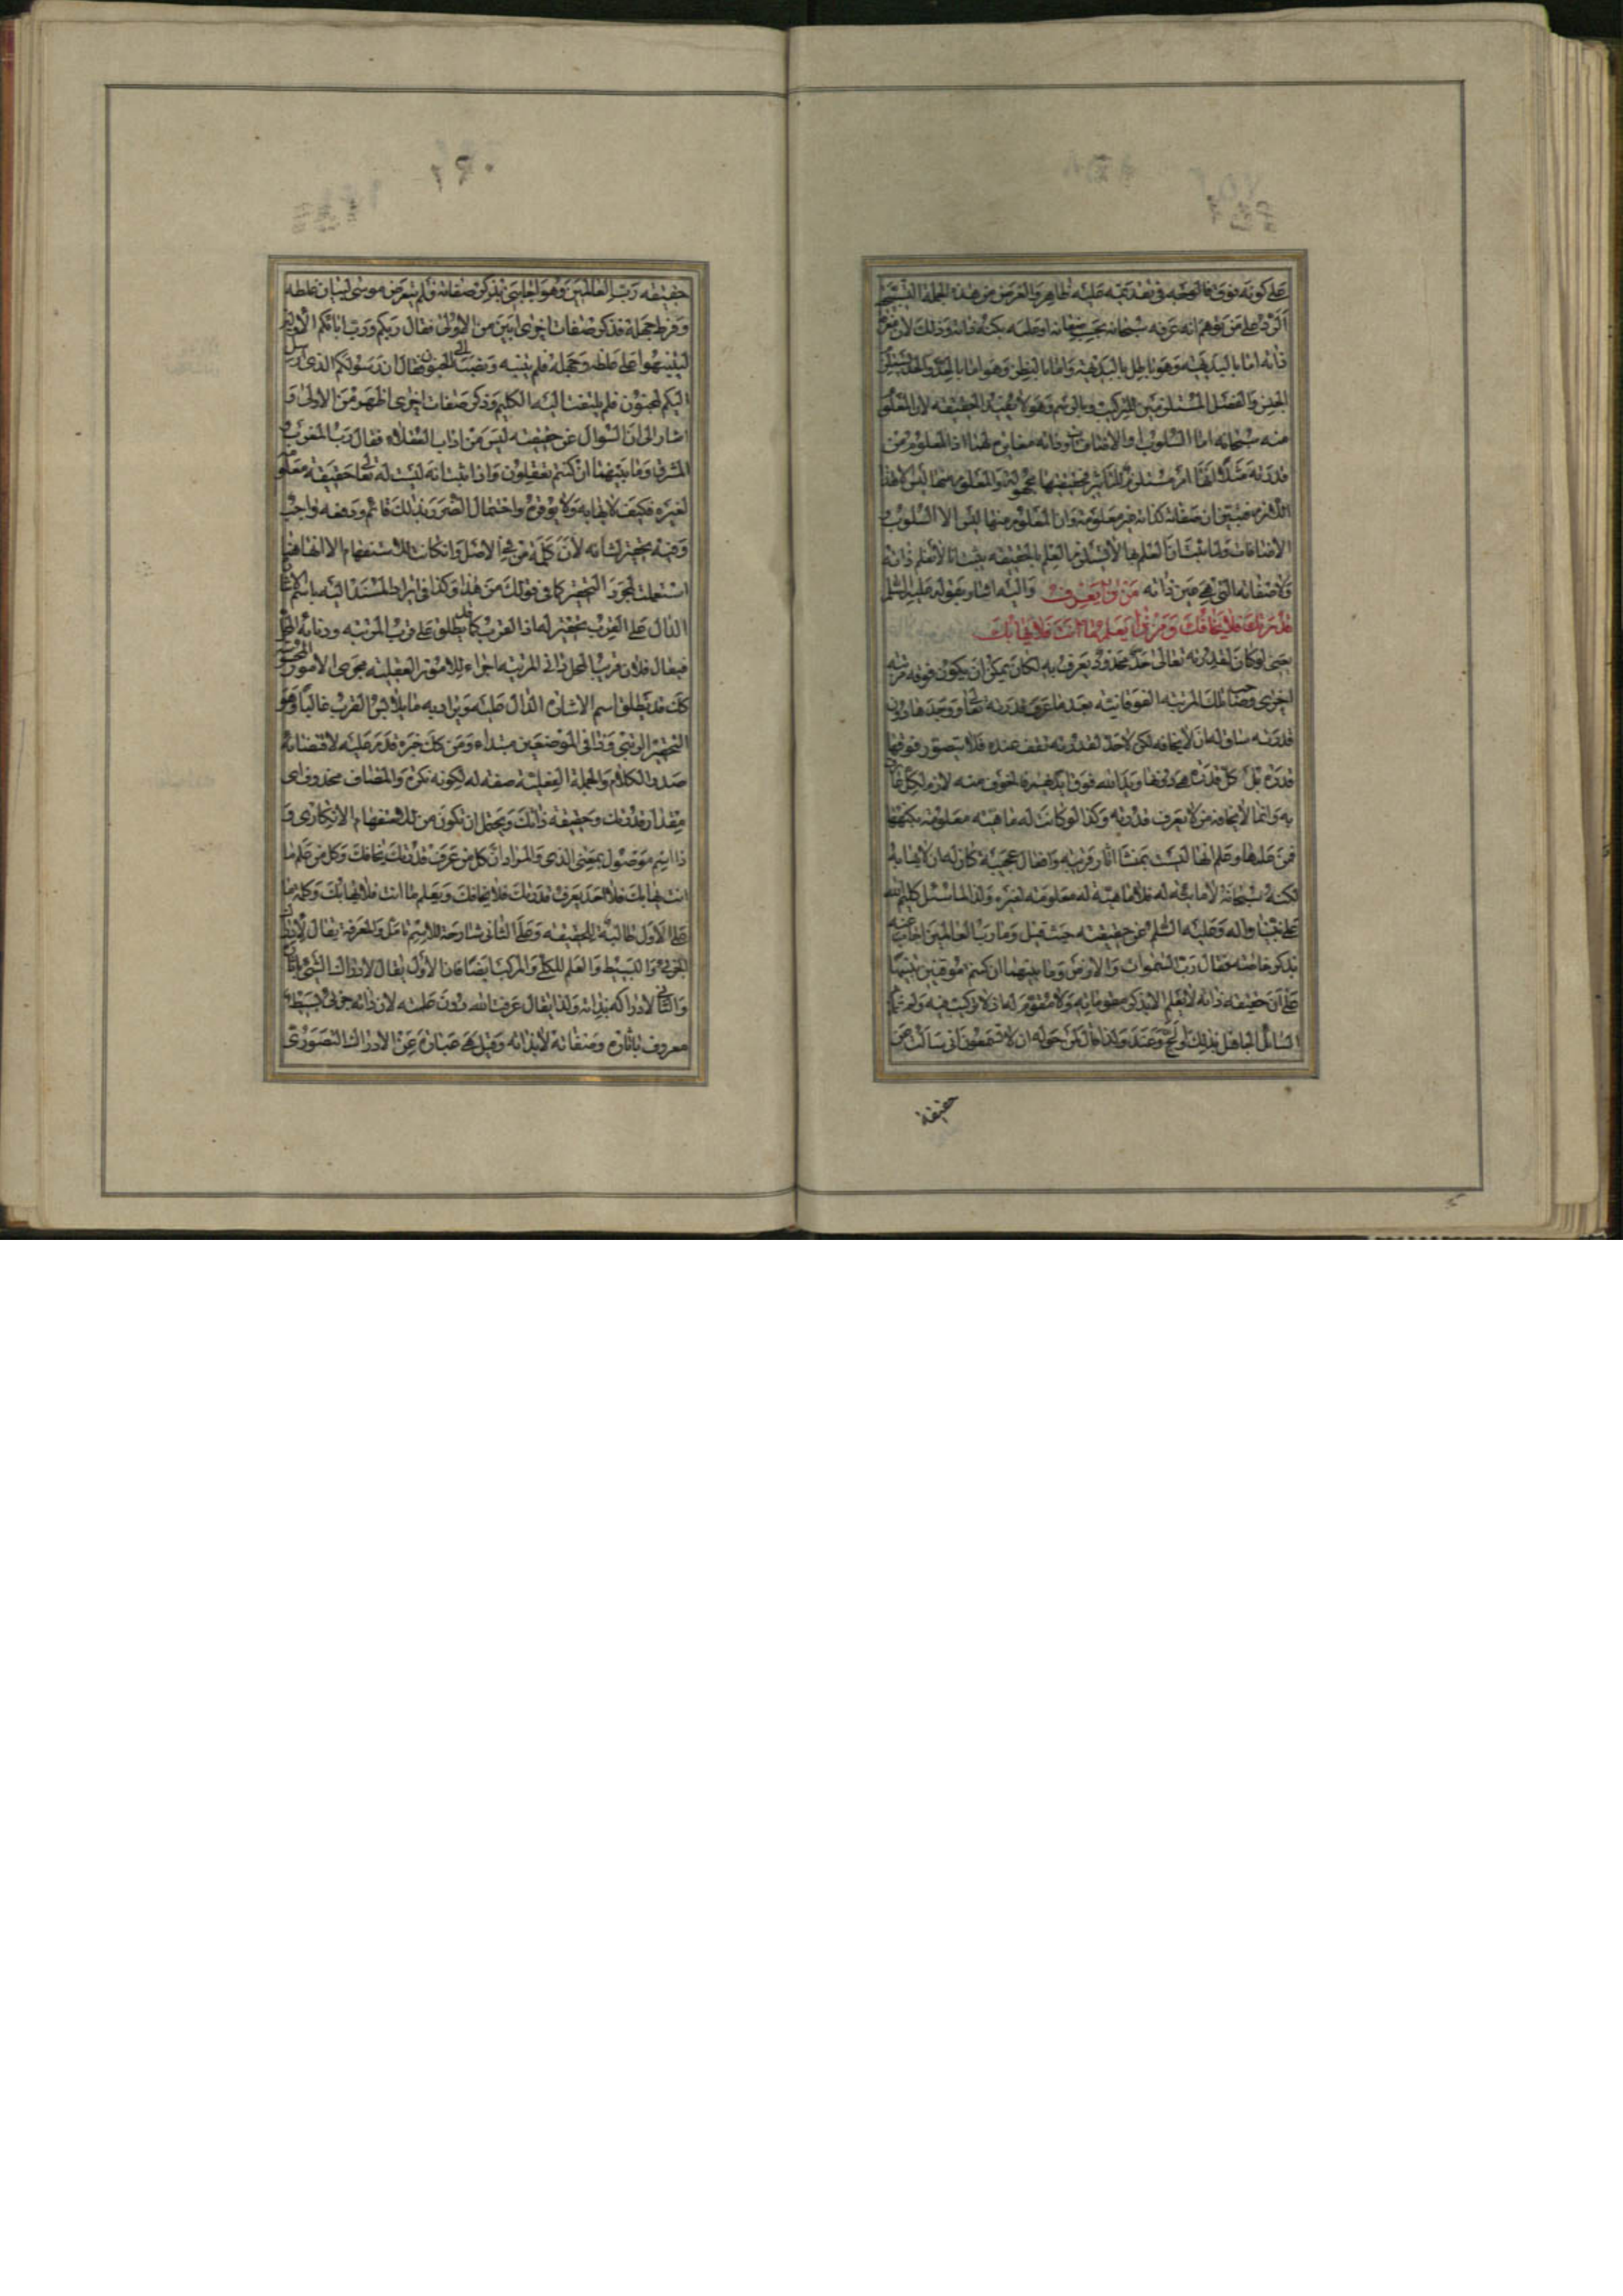 على كونه فوق فالوجه في تقديمه عليه ظاهر والغرض من هذه الجملة
الرد على من توهم انه عرفه سبحانه بحسب صفاته او علمه بكنه ذاته وذلك لان معرفة
ذاته اما بالبديهة وهو باطل بالبديهة واما بالنظر وهو اما بالحد
الجنس والفصل المستلزمين للتركيب وبالرسم وهو لا يفيد الحقيقة لان المعلوم
منه سبحانه اما السلوب او الاضافات وذاته مغايرة لهذا اذ المعلوم من
قدرته مثلا انها امر مستلزم للتأثير فحقيقتها مجهولة والمعلوم منها ليس الا هذا
اللازم فتبين ان صفاته كذاته غير معلومة وان المعلوم منها ليس الا السلوب و
الاضافات ولما ثبت ان العلم بها لا يستلزم العلم بالحقيقة ثبت انا لا نعلم ذاته
ولا صفاته التي هي عين ذاته من ذا يعرف واليه اشار بقوله عليه السلام
قدرتك فلا يخافك ومن ذا يعلم ما انت فلا يهابك
يعني لو كان لقدرته تعالى حد محدود يعرف به لكان يمكن ان يكون فوقه مرتبة
اخرى وصاحب تلك المرتبة الفوقانية بعد ما عرف قدرته تعالى ووجدها دون
قدرته ساق له ان لا يخافه لكن لا حد لقدرته تقف عنده فلا يتصور فوقها
قدرة بل كل قدرة هو دونها ويد الله فوق ايديهم فالخوف منه لازم لكل
به وانما لا يخافه من لا يعرف قدرته وكذا لو كانت له ماهية معلومة بكنهها
فمن علمها وعلم انها ليست بمنشأ اثار قريبة وافعال عجيبة كان له ان لا يهابه
لكنه سبحانه لا ماهية له فلا ماهية له معلومة لغيره ولذا لما سئل كليم الله
على نبينا واله وعليه السلم عن حقيقته حيث قيل وما رب العالمين اجاب عنه
بذكر خاصته فقال رب السموات والارض وما بينهما ان كنتم موقنين تنبيها
على ان حقيقة ذاته لا تعلم الا بذكر مقوماته ولا مقوم له اذ لا تركيب فيه ولم
السائل الجاهل بذلك ولج وعند ولذا قال لمن حوله ان لا تستمعون اني سالت عن
حقيقة
حقيقة رب العالمين وهو اجابني بذكر صفاته ولم يتعرض موسى لبيان غلطه
وفرط جهله فذكر صفات اخرى ابين من الاولى فقال ربكم ورب ابائكم الاولين
لينبهوا على غلطه وجهله فلم ينتبه ونسبه الى الجنون فقال ان رسولكم الذي ارسل
اليكم لمجنون فلم يلتفت اليه الكليم وذكر صفات اخرى اظهر من الاولى و
اشار الى ان السؤال عن حقيقته ليس من اداب العقلاء فقال رب المغرب و
المشرق وما بينهما ان كنتم تعقلون واذا ثبت انه ليست له تعالى حقيقة معلومة
لغيره فكيف لا يهابه ولا يوقره واحتمال الضرر بذلك قائم ودفعه واجب
وفيه تحقير لشانه لان كلمة من في الاصل وان كانت للاستفهام الا انها هنا
استعملت لمجرد التحقير كما في قولك من هذا وكذا في ايراد المسند اليه باسم الاشارة
الدال على القرب تحقير له اذ القرب كما يطلق على قرب المرتبة ودناءة المحل
فيقال فلان قريب المحل داني المرتبة اجراء للامور العقلية مجرى الامور المحسوسة
كك قد يطلق اسم الاشارة الدال عليه ويراد به ما يلابس القرب غالبا وهو
التحقير الرتبي وذا في الموضعين مبتداء ومن كك خبره قدم عليه لاقتضائه
صدر الكلام والجملة الفعلية صفة له لكونه نكرة والمضاف محذوف اى
مقدار قدرتك وحقيقة ذاتك ويحتمل ان تكون من للاستفهام الانكارى و
ذا اسم موصول بمعنى الذي والمراد ان كل من عرف قدرتك يخافك وكل من علم ما
انت يهابك فلا احد يعرف قدرتك فلا يخافك ويعلم ما انت فلا يهابك وكلمة ما
على الاول طالبة للحقيقة وعلى الثاني شارحة للاسم تامل والمعرفة يقال لادراك
الجزئي والبسيط والعلم للكلي والمركب ايضا فان الاول يقال لادراك الشئ باثاره
والثاني لادراكه بذاته ولذا يقال عرفت الله دون علمته لان ذاته جزئي بسيط
معروف باثاره وصفاته لا بذاته وقيل هي عبارة عن الادراك التصوري